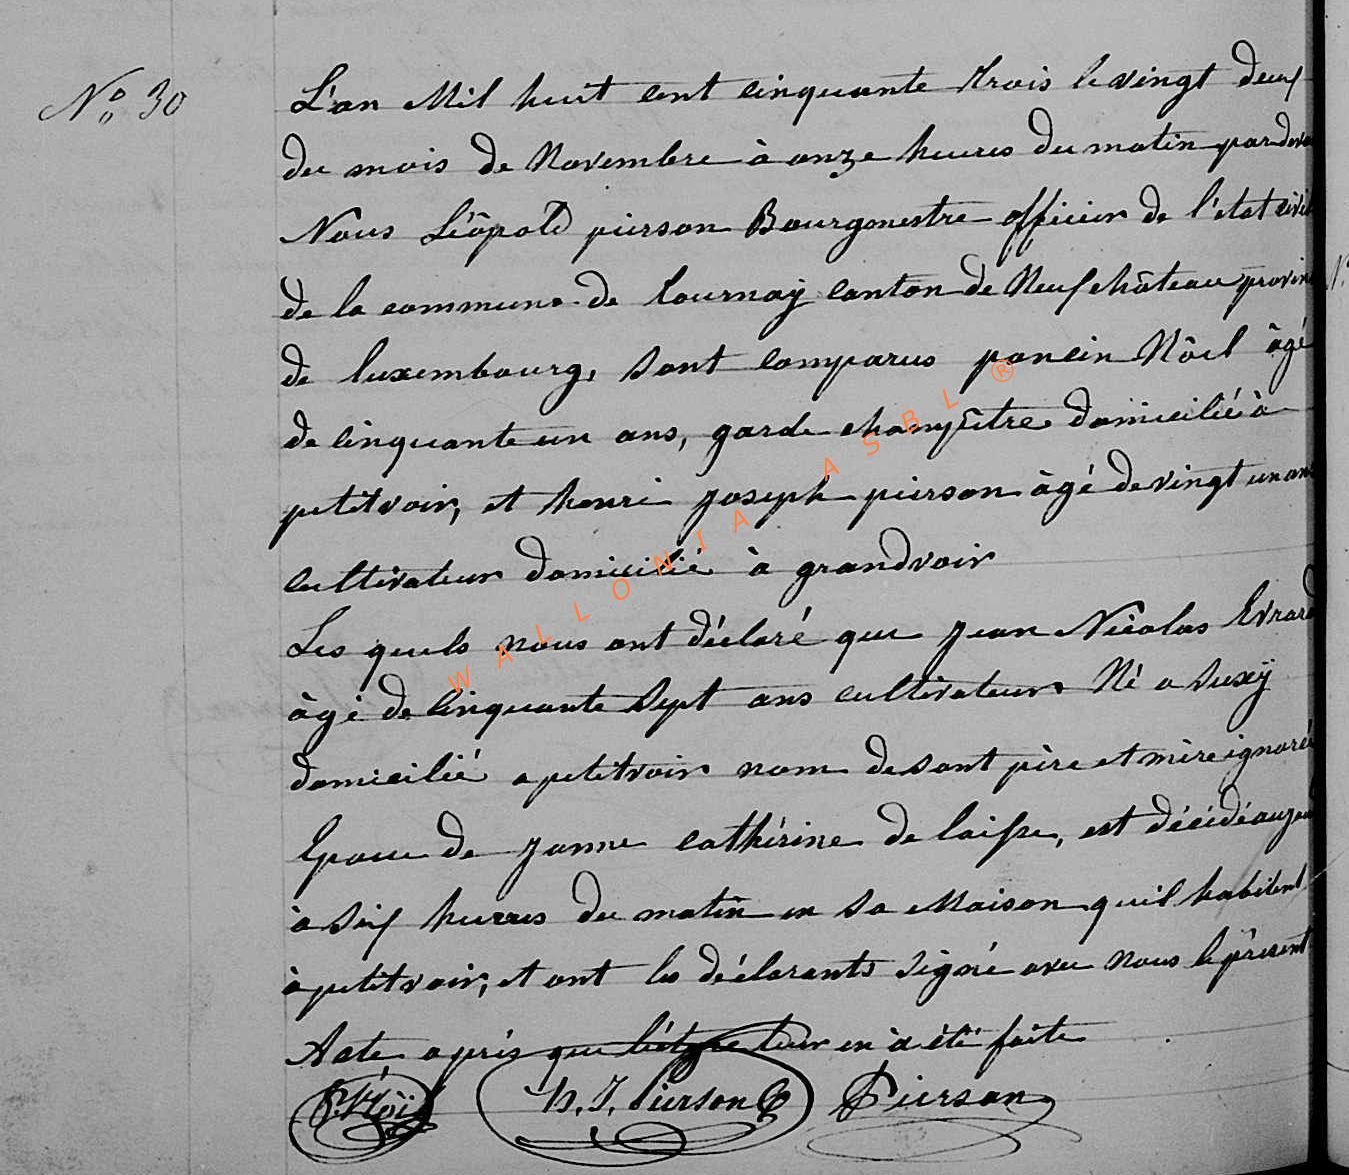 No 30
L'an Mil huit cent cinquante trois le vingt deux
du mois de Novembre à onze heures du matin pardeva
Nous Léopold pierson Bourgmestre officier de l'état civil
de la commune de tournay canton de Neufchâteau provin
de luxembourg, sont comparus poncin Nôel âgé
de cinquante un ans, garde champêtre domicilié à
petitvoir, et henri joseph pierson âgé de vingt un ans
cultivateur domicilié à grandvoir
Les quels nous ont déclaré que jean Nicolas Evrard
âgé de cinquante sept ans cultivateur Né a suxÿ
domicilié a petitvoir nom de sont père et mère ignorée
Epoux de janne cathérine de laisse, est décédé aujou
à six heures du matin en sa Maison qu'il habitent
à petitvoir, et ont les déclarants signé avec nous le présent
Acte après que lecture leur en à été faite
H. J. Pierson Pierson
WALLONIA ASBL ®